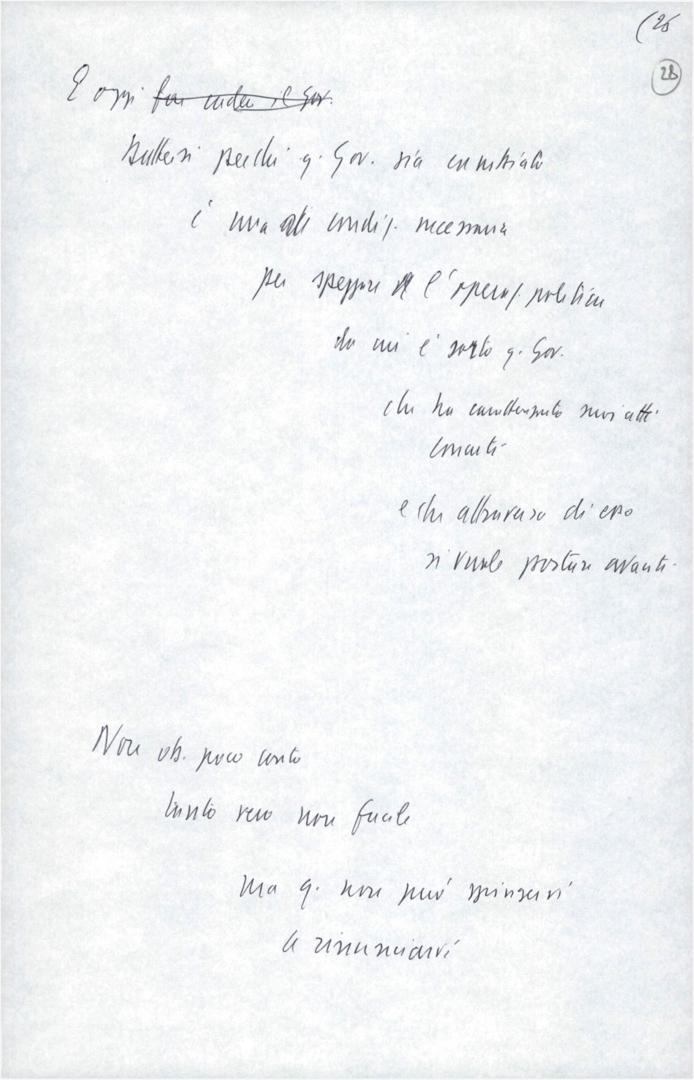 (25
28
E oggi far cader il Gov.
Battersi perché q. Gov. sia cambiato
è una condiz. necessaria
per spezzare l'operaz. politica
da cui è sorto q. Gov.
che ha caratterizzato suoi atti
concreti
e che attraverso di esso
si vuole portare avanti.
Non ob. poco conto
tanto vero non facile
ma q. non può spingerci
a rinunciarvi